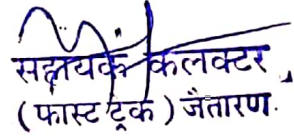 सहायक कलक्टर
(फास्ट ट्रेक) जैतारण.